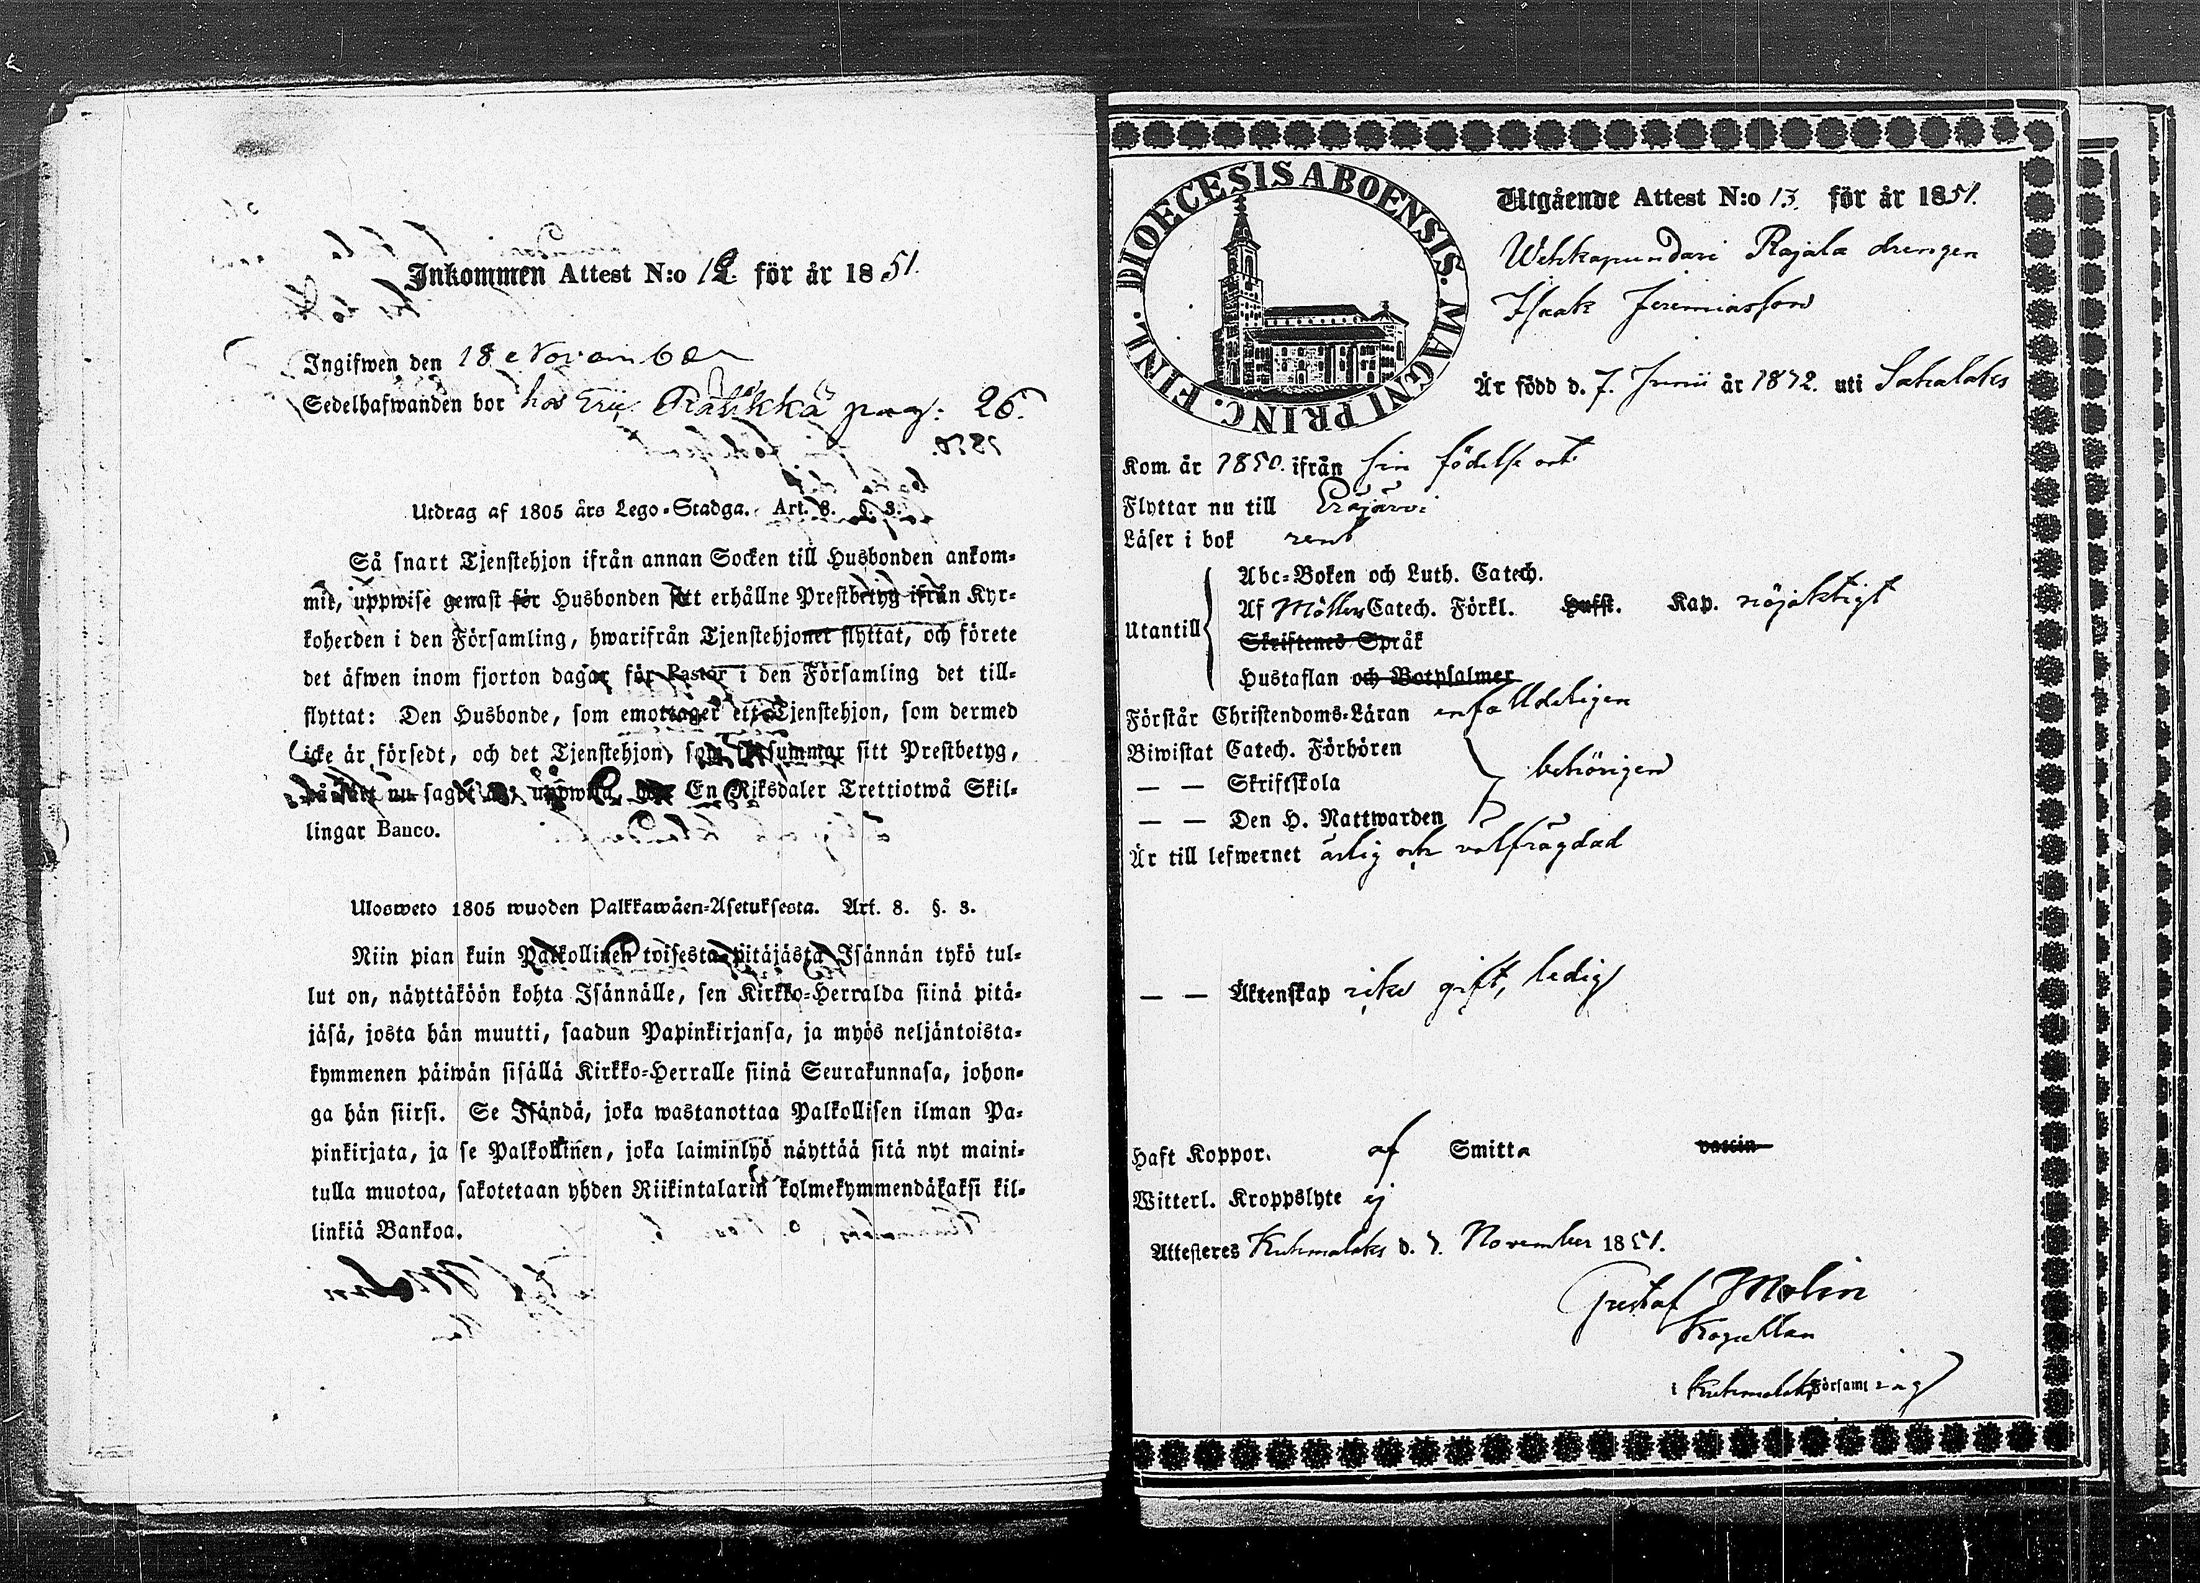 Inkommen Attest N:o 12. för år 1851.
Ingifwen den 18 November
Sedelhafwanden bor hos Eric Rätikkä pag: 26.
Utdrag af 1805 års Lego-Stadga. Art. 8. §. 3.
Så snart Tjenstehjon ifrån annan Socken till Husbonden ankom-
mit, uppwise genast för Husbonden sitt erhållne Prestbetyg ifrån Kyr-
koherden i den Församling, hwarifrån Tjenstehjonet flyttat, och förete
det äfwen inom fjorton dagar för Pastor i den Församling det till-
flyttat: Den Husbonde, som emottager ett Tjenstehjon, som dermed
icke är försedt, och det Tjenstehjon, som försummar sitt Prestbetyg,
på sätt nu sagdt är, uppwisa, En Riksdaler Trettiotwå Skil-
lingar Banco.
Ulosweto 1805 wuoden Palkkawäen-Asetuksesta. Art. 8. §. 3.
Niin pian kuin Palkollinen toisesta pitäjästä Isännän tykö tul-
lut on, näyttäköön kohta Isännälle, sen Kirkko-Herralda siinä pitä-
jäsä, josta hän muutti, saadun Papinkirjansa, ja myös neljäntoista-
kymmenen päiwän sisällä Kirkko-Herralle siinä Seurakunnasa, johon-
ga hän siirsi. Se Isändä, joka wastanottaa Palkollisen ilman Pa-
pinkirjata, ja se Palkollinen, joka laiminlyö näyttää sitä nyt maini-
tulla muotoa, sakotetaan yhden Riikintalarin kolmekymmendäkaksi kil-
linkiä Bankoa.
DIOECESIS ABOENSIS. MAGNI PRINC. FINL.
Utgående Attest N:o 13. för år 1851.
Wehkapundari Rajala drengen
Isaak Jeremiasson
Är född d. 7. Junii år 1812. uti Sahalaks
Kom år 1850. ifrån sin födelse ort
Flyttar nu till Eräjärvi
Läser i bok rent
Utantill
Abc-Boken och Luth. Catech.
Af Möllers Catech. Förkl. Hufst. Kap. nöjaktigt
Skriftenes Språk
Hustaflan och Botpsalmer
Förstår Christendoms-Läran enfalldeligen
Biwistat Catech. Förhören
— — Skriftskola behörigen
— — Den H. Nattwarden
Är till lefwernet ärlig och välfrägdad
— — Äktenskap icke gift, ledig
Haft Koppor. af Smitta vaccin
Witterl. Kroppslyte ej
Attesteres Kuhmalaks d. 7. November 1851.
Gustaf Molin
Kapellan
i Kuhmalaks Församling